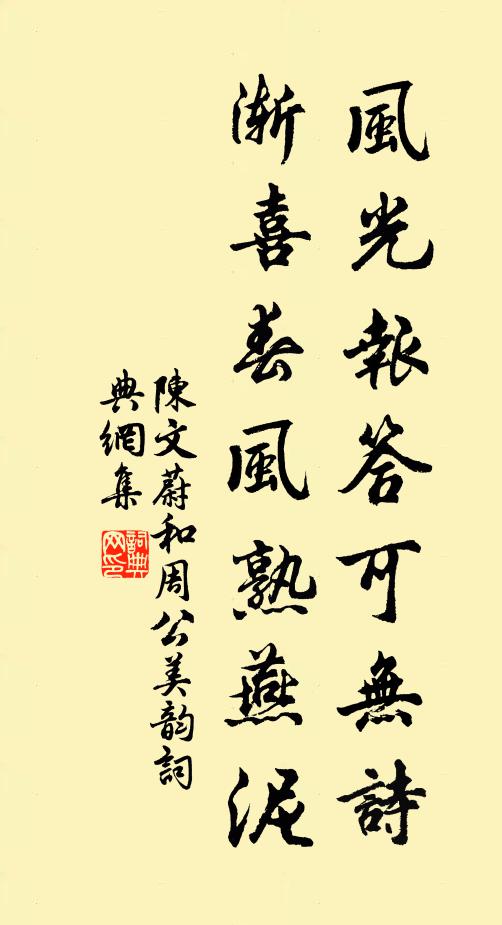 風光報答可無詩
漸喜春風熟燕泥
陳文蔚和周公美韵詞
典網集
詞典网印